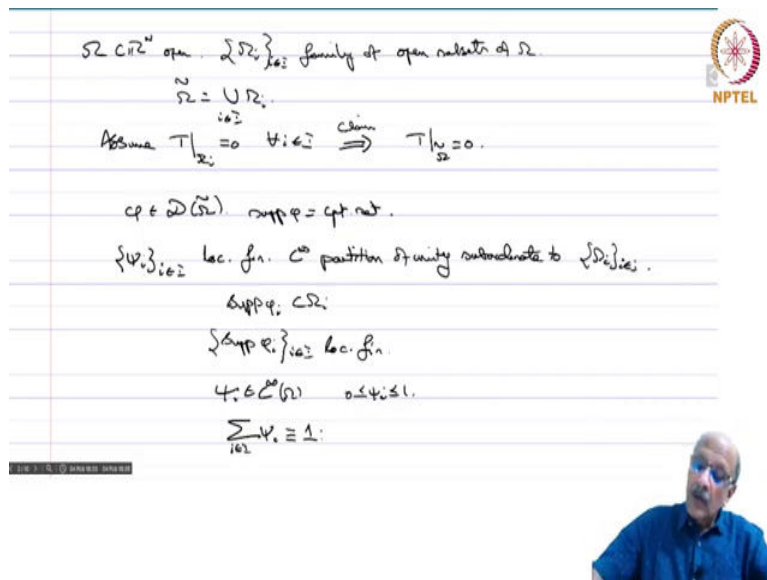 Ω ⊂ ℝᴺ open. {Ωᵢ}ᵢ∈I family of open subsets of Ω.
Ω̃ = ⋃ᵢ∈I Ωᵢ.
Assume T|Ωᵢ = 0 ∀ i ∈ I ⟹ (claim) T|Ω̃ = 0.
φ ∈ 𝒟(Ω̃). supp φ = cpt set.
{ψᵢ}ᵢ∈I loc. fin. C^∞ partition of unity subordinate to {Ωᵢ}ᵢ∈I.
supp φᵢ ⊂ Ωᵢ
{supp φᵢ}ᵢ∈I loc. fin.
ψᵢ ∈ C^∞(Ω) 0 ≤ ψᵢ ≤ 1.
∑ᵢ∈I ψᵢ ≡ 1.
NPTEL